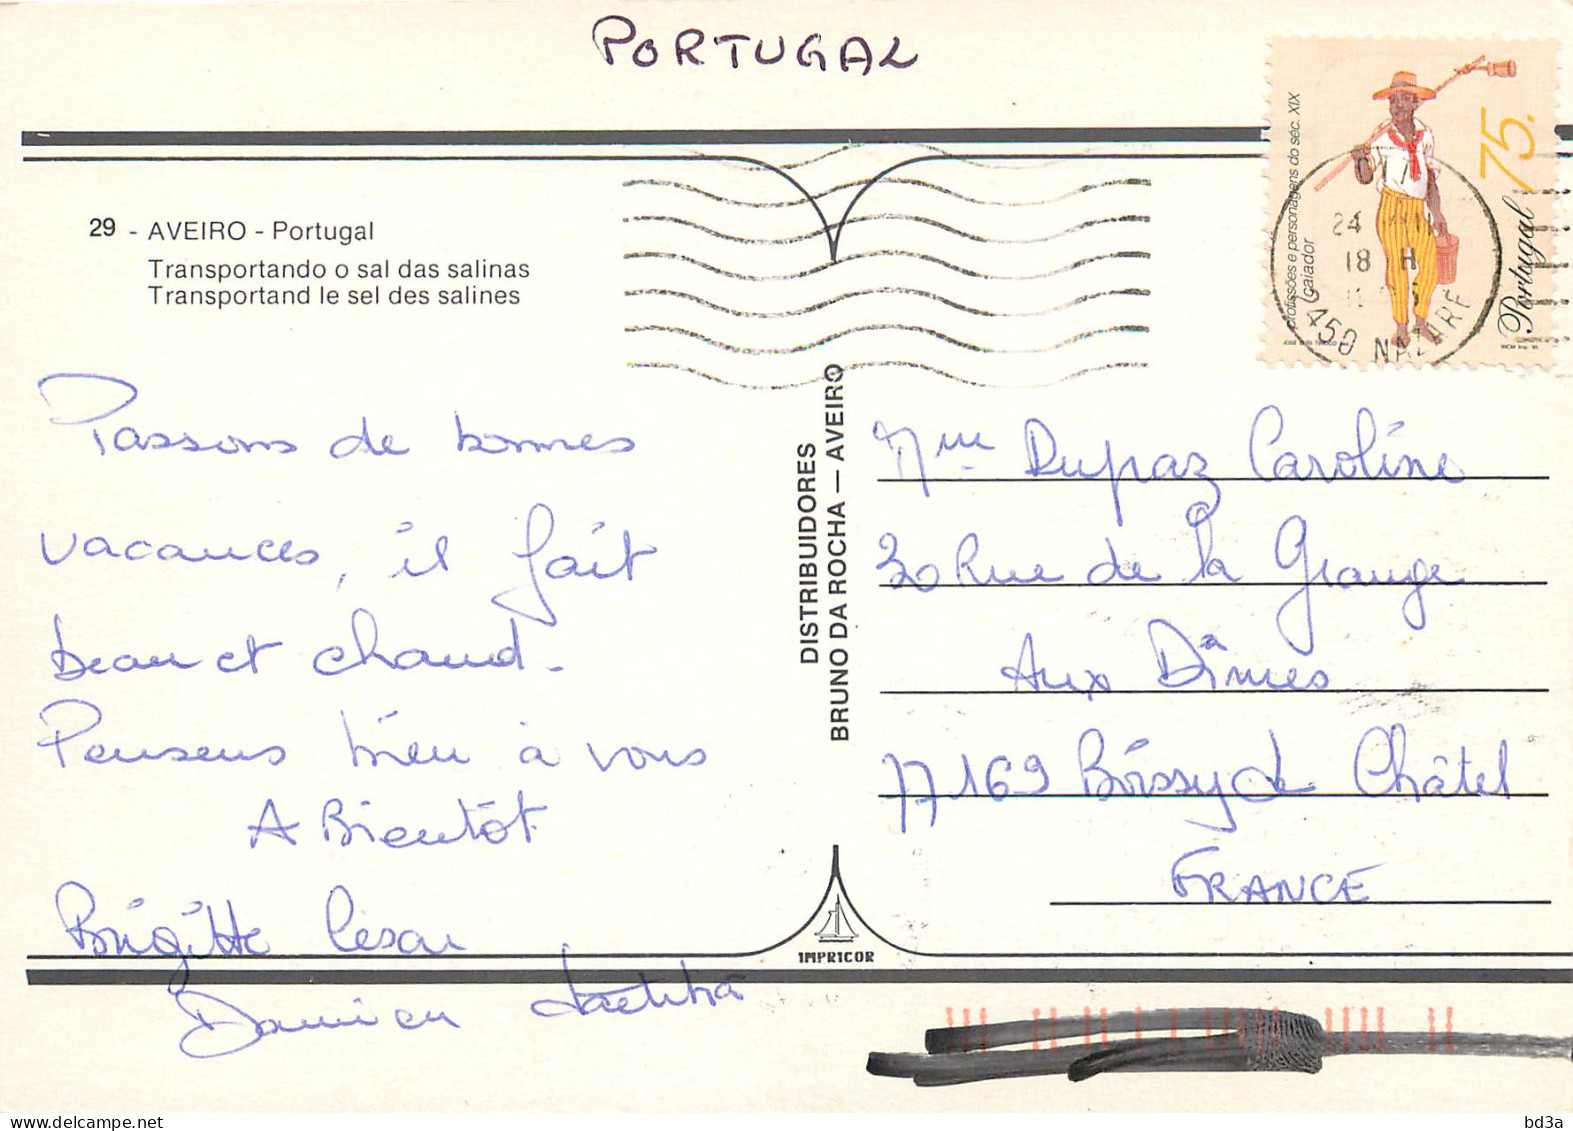 PORTUGAL
29 - AVEIRO - Portugal
Transportando o sal das salinas
Transportand le sel des salines
profissões e personagens do séc. XIX
caiador
75.
Portugal
24
18 H
2450 NAZARÉ
Passons de bonnes
vacances, il fait
beau et chaud.
Pensons bien à vous
A Bientôt
Brigitte César
Damien Laetitia
DISTRIBUIDORES
BRUNO DA ROCHA — AVEIRO
Dupaz Caroline
30 Rue de la Grange
Aux Dîmes
77169 Boissy le Châtel
FRANCE
IMPRICOR
bd3a